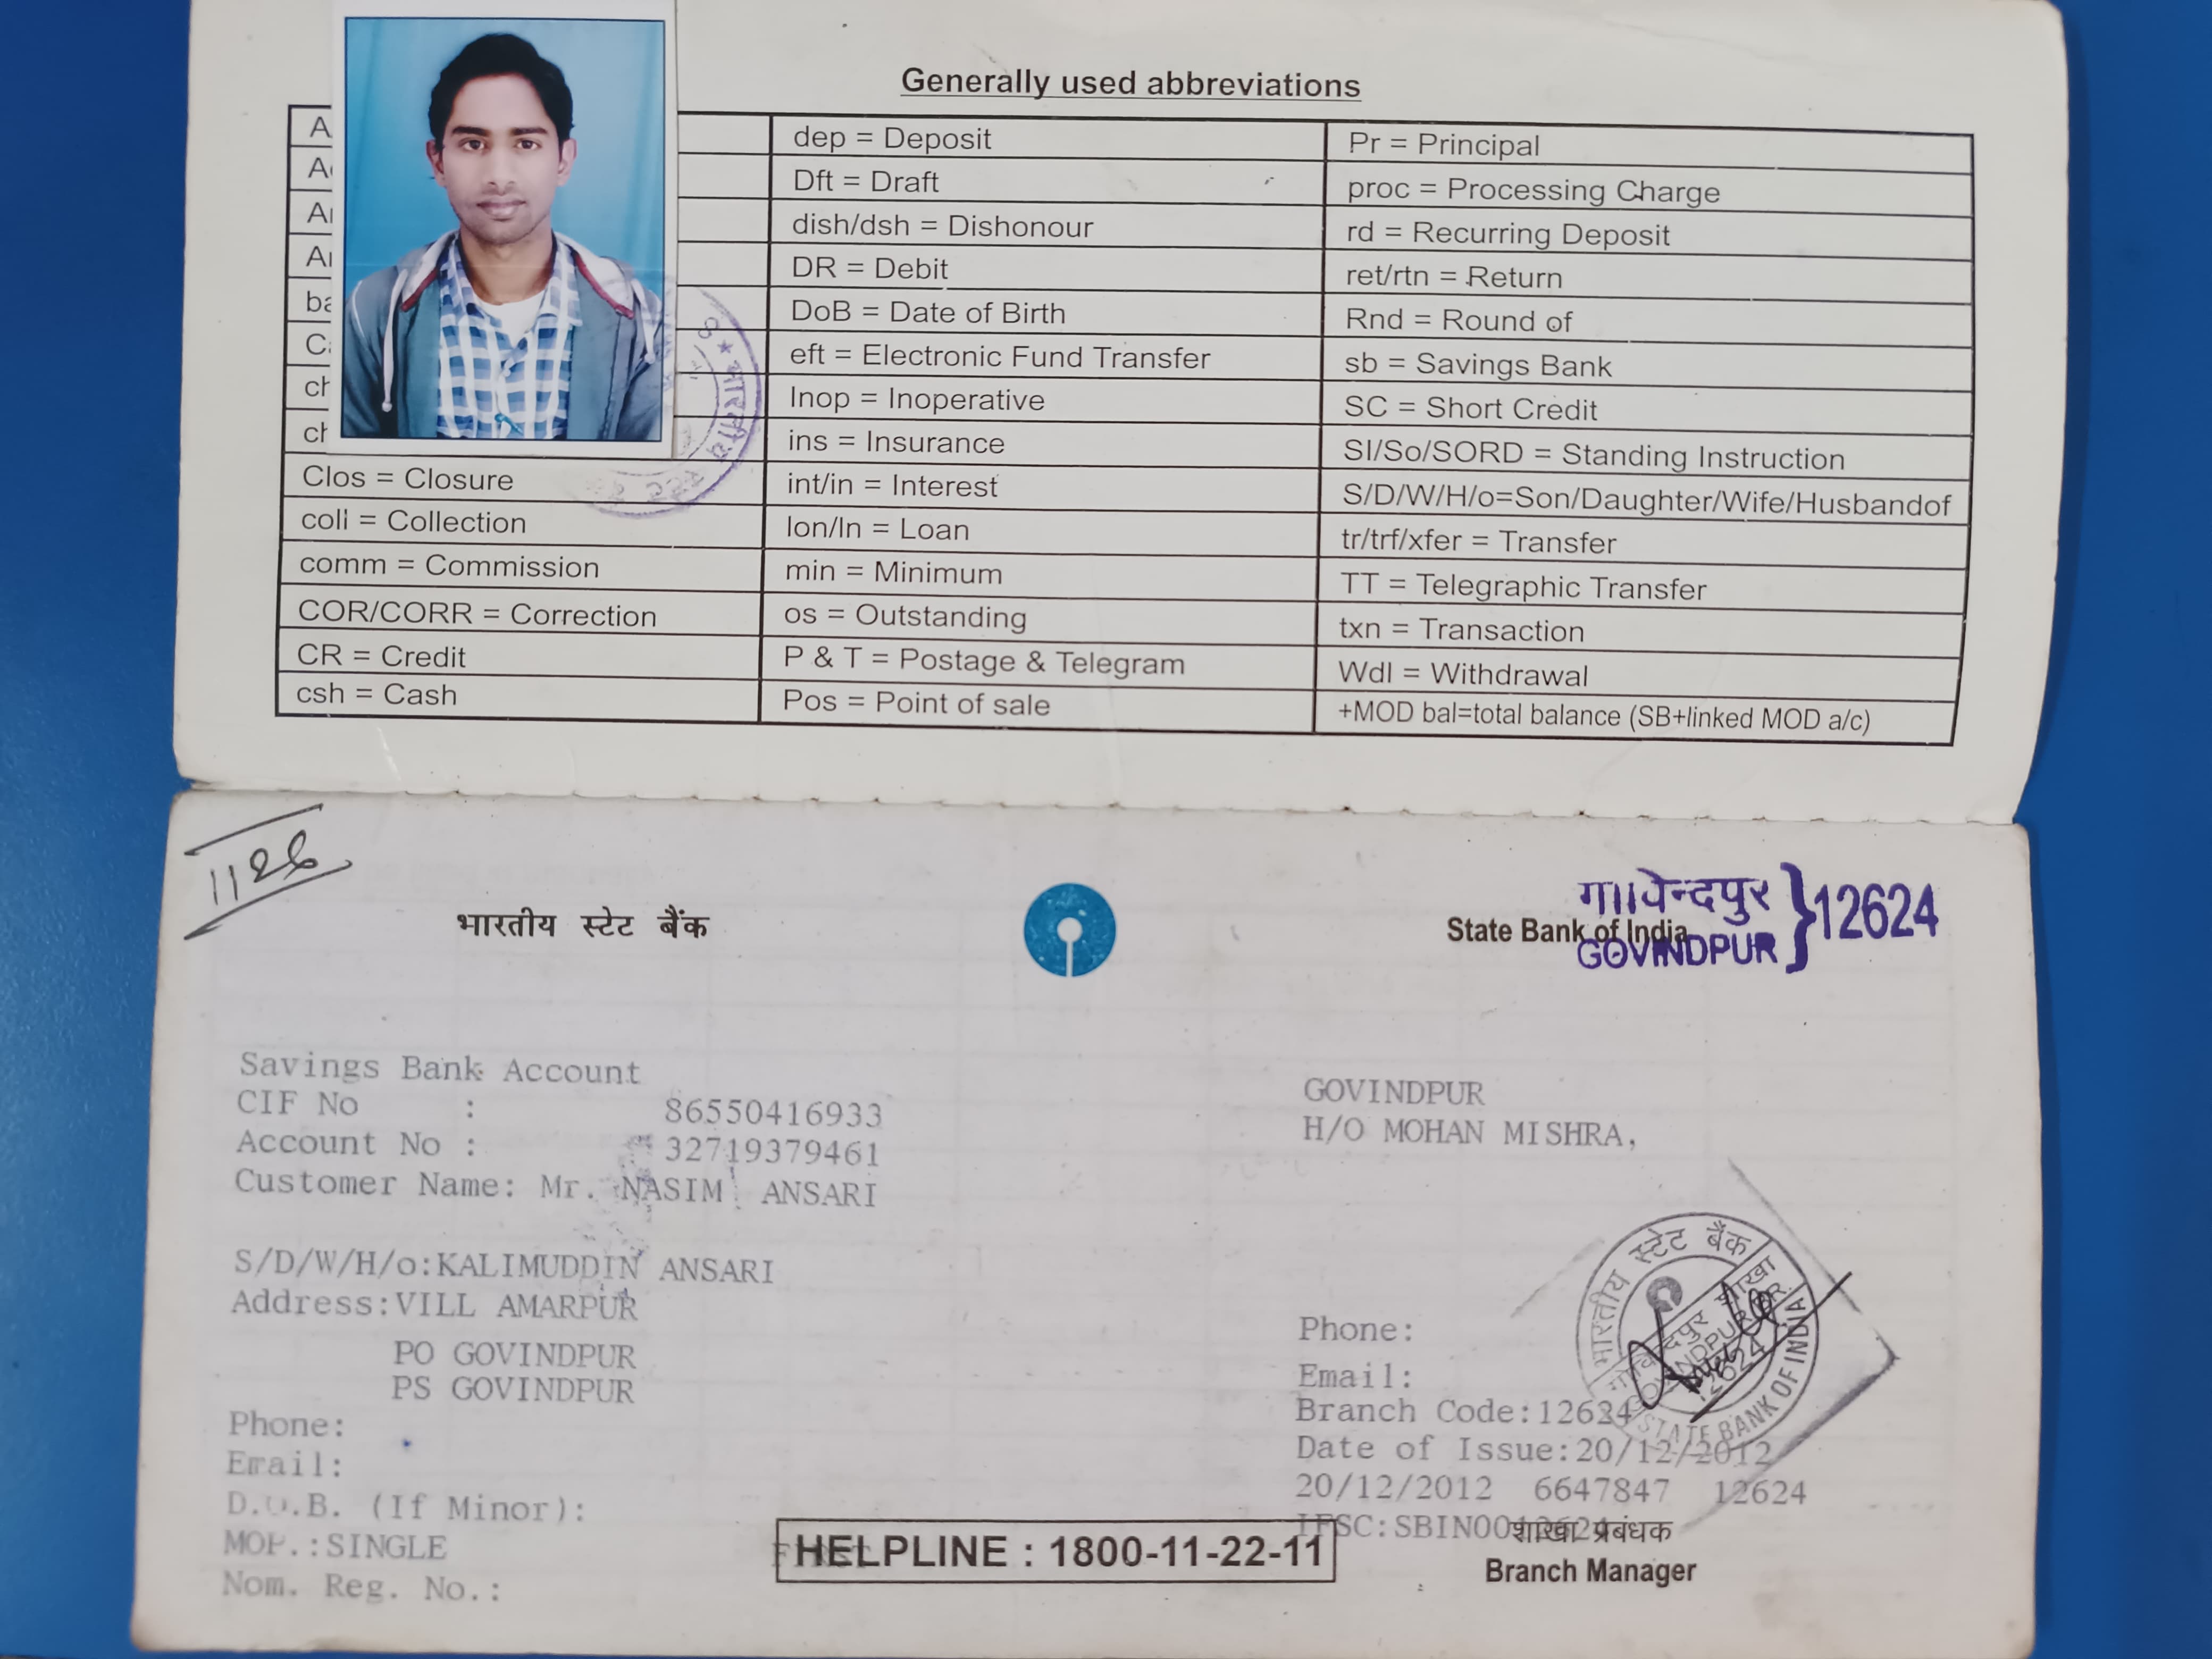 Generally used abbreviations
A
A
A
A
ba
C
ch
ch
Clos = Closure
coli = Collection
comm = Commission
COR/CORR = Correction
CR = Credit
csh = Cash
dep = Deposit
Dft = Draft
dish/dsh = Dishonour
DR = Debit
DoB = Date of Birth
eft = Electronic Fund Transfer
Inop = Inoperative
ins = Insurance
int/in = Interest
lon/ln = Loan
min = Minimum
os = Outstanding
P & T = Postage & Telegram
Pos = Point of sale
Pr = Principal
proc = Processing Charge
rd = Recurring Deposit
ret/rtn = Return
Rnd = Round of
sb = Savings Bank
SC = Short Credit
SI/So/SORD = Standing Instruction
S/D/W/H/o=Son/Daughter/Wife/Husbandof
tr/trf/xfer = Transfer
TT = Telegraphic Transfer
txn = Transaction
Wdl = Withdrawal
+MOD bal=total balance (SB+linked MOD a/c)
भारतीय स्टेट बैंक
State Bank of India
GOVINDPUR } 12624
Savings Bank Account
CIF No : 86550416933
Account No : 32719379461
Customer Name: Mr. NASIM ANSARI
S/D/W/H/o:KALIMUDDIN ANSARI
Address:VILL AMARPUR
PO GOVINDPUR
PS GOVINDPUR
Phone:
Email:
D.O.B. (If Minor):
MOP.:SINGLE
Nom. Reg. No.:
GOVINDPUR
H/O MOHAN MISHRA,
Phone:
Email:
Branch Code:12624
Date of Issue:20/12/2012
20/12/2012 6647847 12624
IFSC:SBIN0012624
शाखा प्रबंधक
Branch Manager
HELPLINE : 1800-11-22-11
भारतीय स्टेट बैंक
STATE BANK OF INDIA
12624